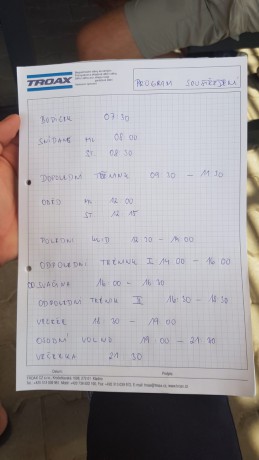 TROAX
PROGRAM SOUSTŘEDĚNÍ
BUDÍČEK 07:30
SNÍDANĚ ML 08:00
ST 08:30
DOPOLEDNÍ TRÉNINK 09:30 - 11:30
OBĚD ML 12:00
ST 12:15
POLEDNÍ KLID 12:30 - 14:00
ODPOLEDNÍ TRÉNINK I 14:00 - 16:00
SVAČINA 16:00 - 16:30
ODPOLEDNÍ TRÉNINK II 16:30 - 18:30
VEČEŘE 18:30 - 19:00
OSOBNÍ VOLNO 19:00 - 21:30
VEČERKA 21:30
Datum: Podpis: